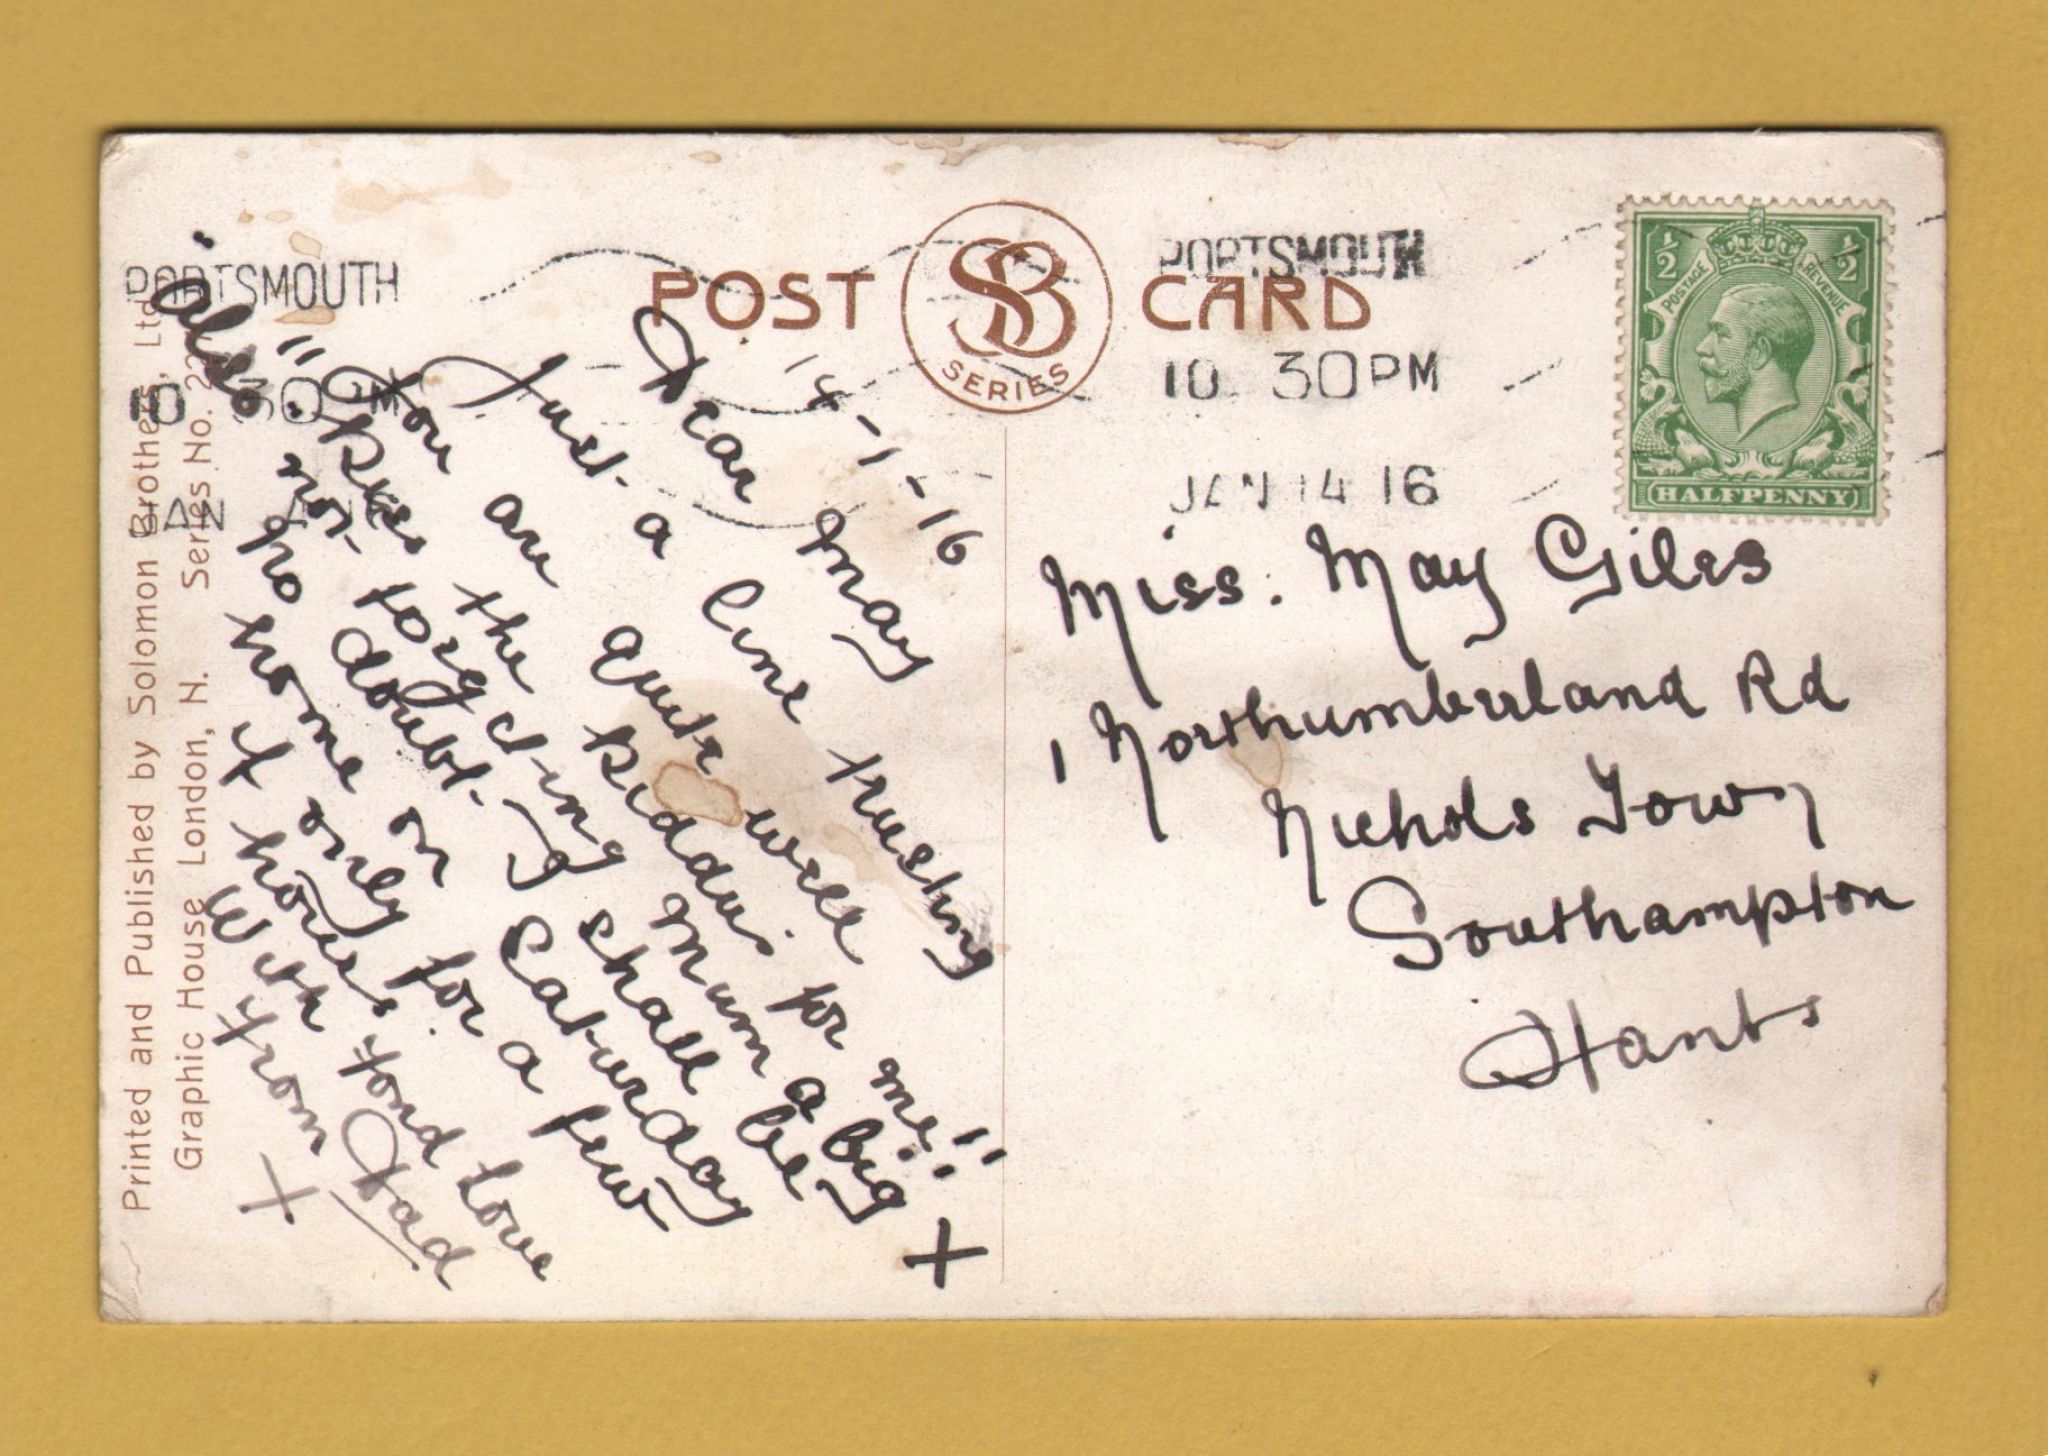 POST CARD
SB
SERIES
PORTSMOUTH
10 30 PM
JAN 14 16
PORTSMOUTH
10 30 PM
JAN
½ ½
POSTAGE REVENUE
HALFPENNY
14-1-16
Dear May
Just a line trusting
You are quite well
"Kiss the Kiddies for me!!"
also.
not forgetting Mum a big X
no doubt I shall be
home on Saturday
if only for a few
hours.
With fond love
from Dad
X
Miss. May Giles
1 Northumberland Rd
Nichols Town
Southampton
Hants
Printed and Published by Solomon Brothers, Ltd
Graphic House London, N. Series No.